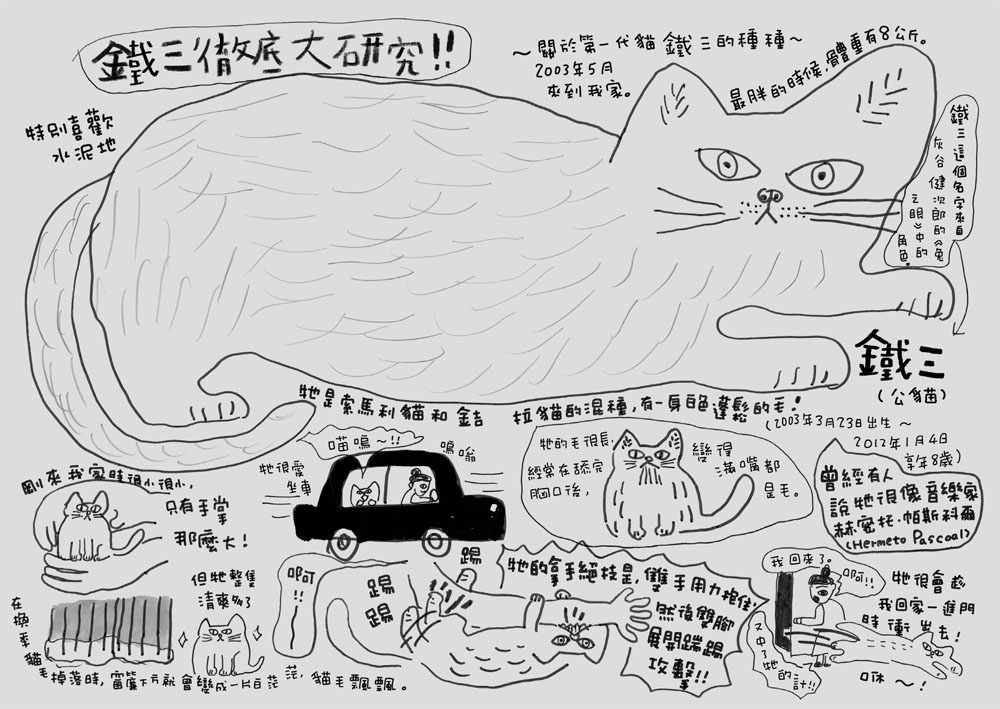 鐵三徹底大研究!!
～關於第一代貓 鐵三的種種～
2003年5月
來到我家。
最胖的時候，體重有8公斤。
特別喜歡
水泥地
鐵三這個名字來自
灰谷健次郎的《兔
之眼》中的
角色。
鐵三
(公貓)
(2003年3月23日出生～
2012年1月4日
享年8歲)
牠是索馬利貓和金吉拉貓的混種，有一身白色蓬鬆的毛！
曾經有人
說牠很像音樂家
赫密托·帕斯科爾
(Hermeto Pascoal)
剛來我家時很小很小，
只有手掌
那麼大！
喵嗚～!!
嗚嗡
牠很愛
坐車
牠的毛很長，
經常在舔完
胸口後，
變得
滿嘴都
是毛。
但牠整隻
清爽多了
在換季貓毛掉落時，窗簾下方就會變成一片白茫茫，貓毛飄飄。
啊!!
踢
踢
踢
牠的拿手絕技是，雙手用力抱住，
然後雙腳
展開踹踢
攻擊!!
我回來了。
啊!!
又中了牠
的計!!
牠很會趁
我回家一進門
時衝出去！
咻～！